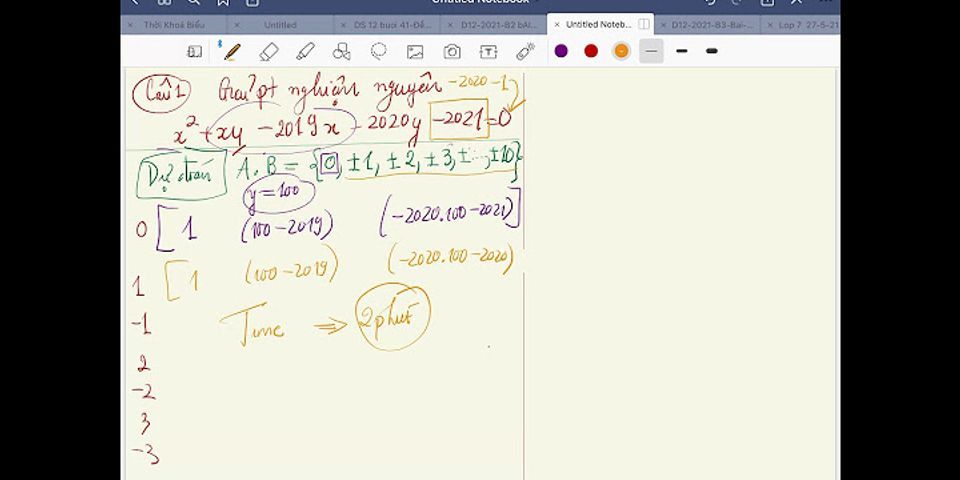 Untitled Notebook
Thời Khoá Biểu
Untitled
DS 12 buoi 41-Đề...
D12-2021-B2 bAI...
Untitled Noteb...
D12-2021-B3-Bai-...
Lop 7 27-5-21
Câu 1 Giải pt nghiệm nguyên -2020 -1
x² + xy - 2019x - 2020y -2021 = 0
Dự đoán A.B = {0, ±1, ±2, ±3, ±..., ±10}
y = 100
0 [ 1 (100 - 2019) (-2020.100 - 2021) ]
1 [ 1 (100 - 2019) (-2020.100 - 2020)
-1 Time ⇒ 2 phút
2
-2
3
-3